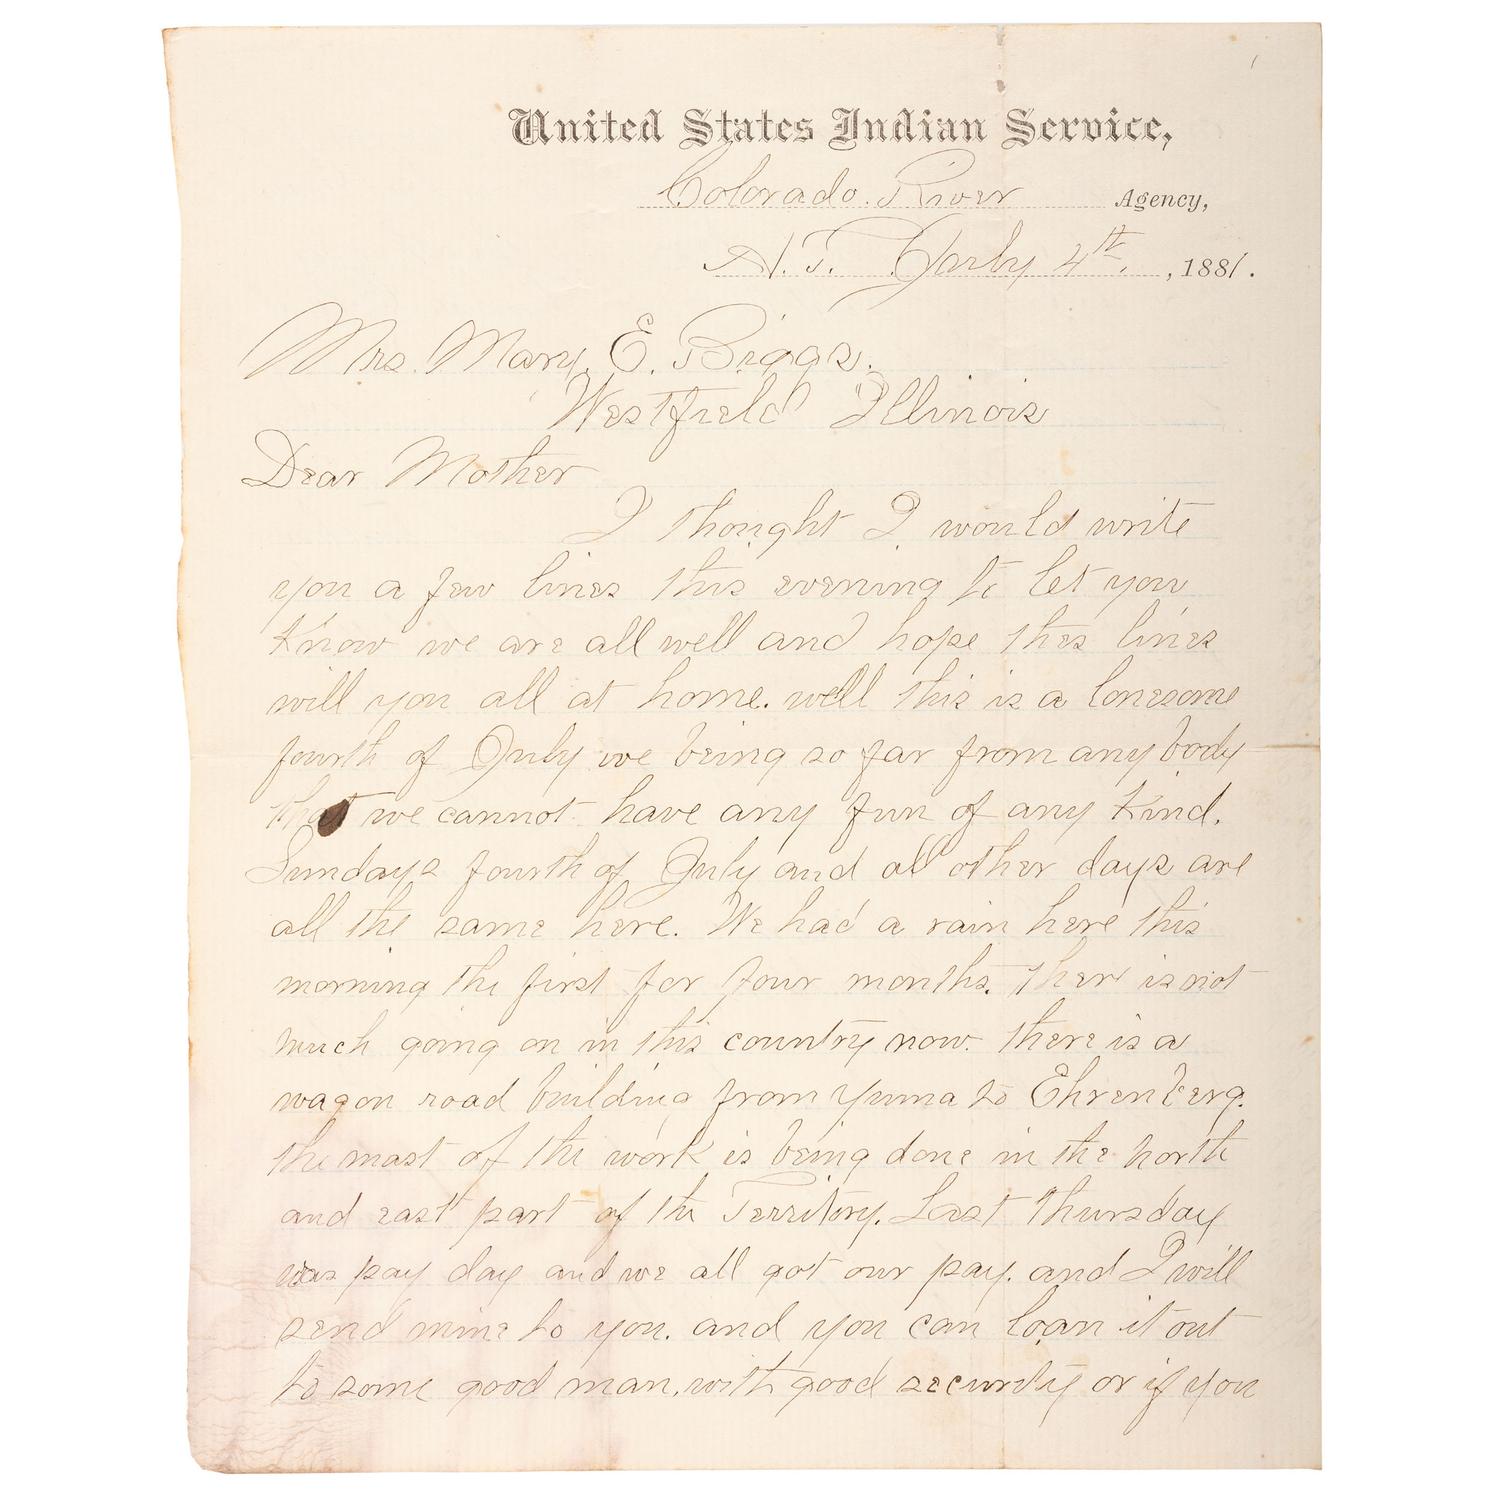 United States Indian Service,
Colorado River Agency,
A. T. July 4th, 1881.
Mrs. Mary E. Biggs.
Westfield Illinois
Dear Mother
I thought I would write
you a few lines this evening to let you
Know we are all well and hope thes lines
will you all at home. well this is a lonesome
fourth of July we being so far from any body
that we cannot have any fun of any Kind.
Sundays fourth of July and all other days are
all the same here. We had a rain here this
morning the first for four months. there is not
much going on in this country now. there is a
wagon road building from Yuma to Ehrenberg.
the most of the work is being done in the north
and east part of the Territory. Last Thursday
was pay day and we all got our pay. and I will
send mine to you. and you can loan it out
to some good man, with good security or if you